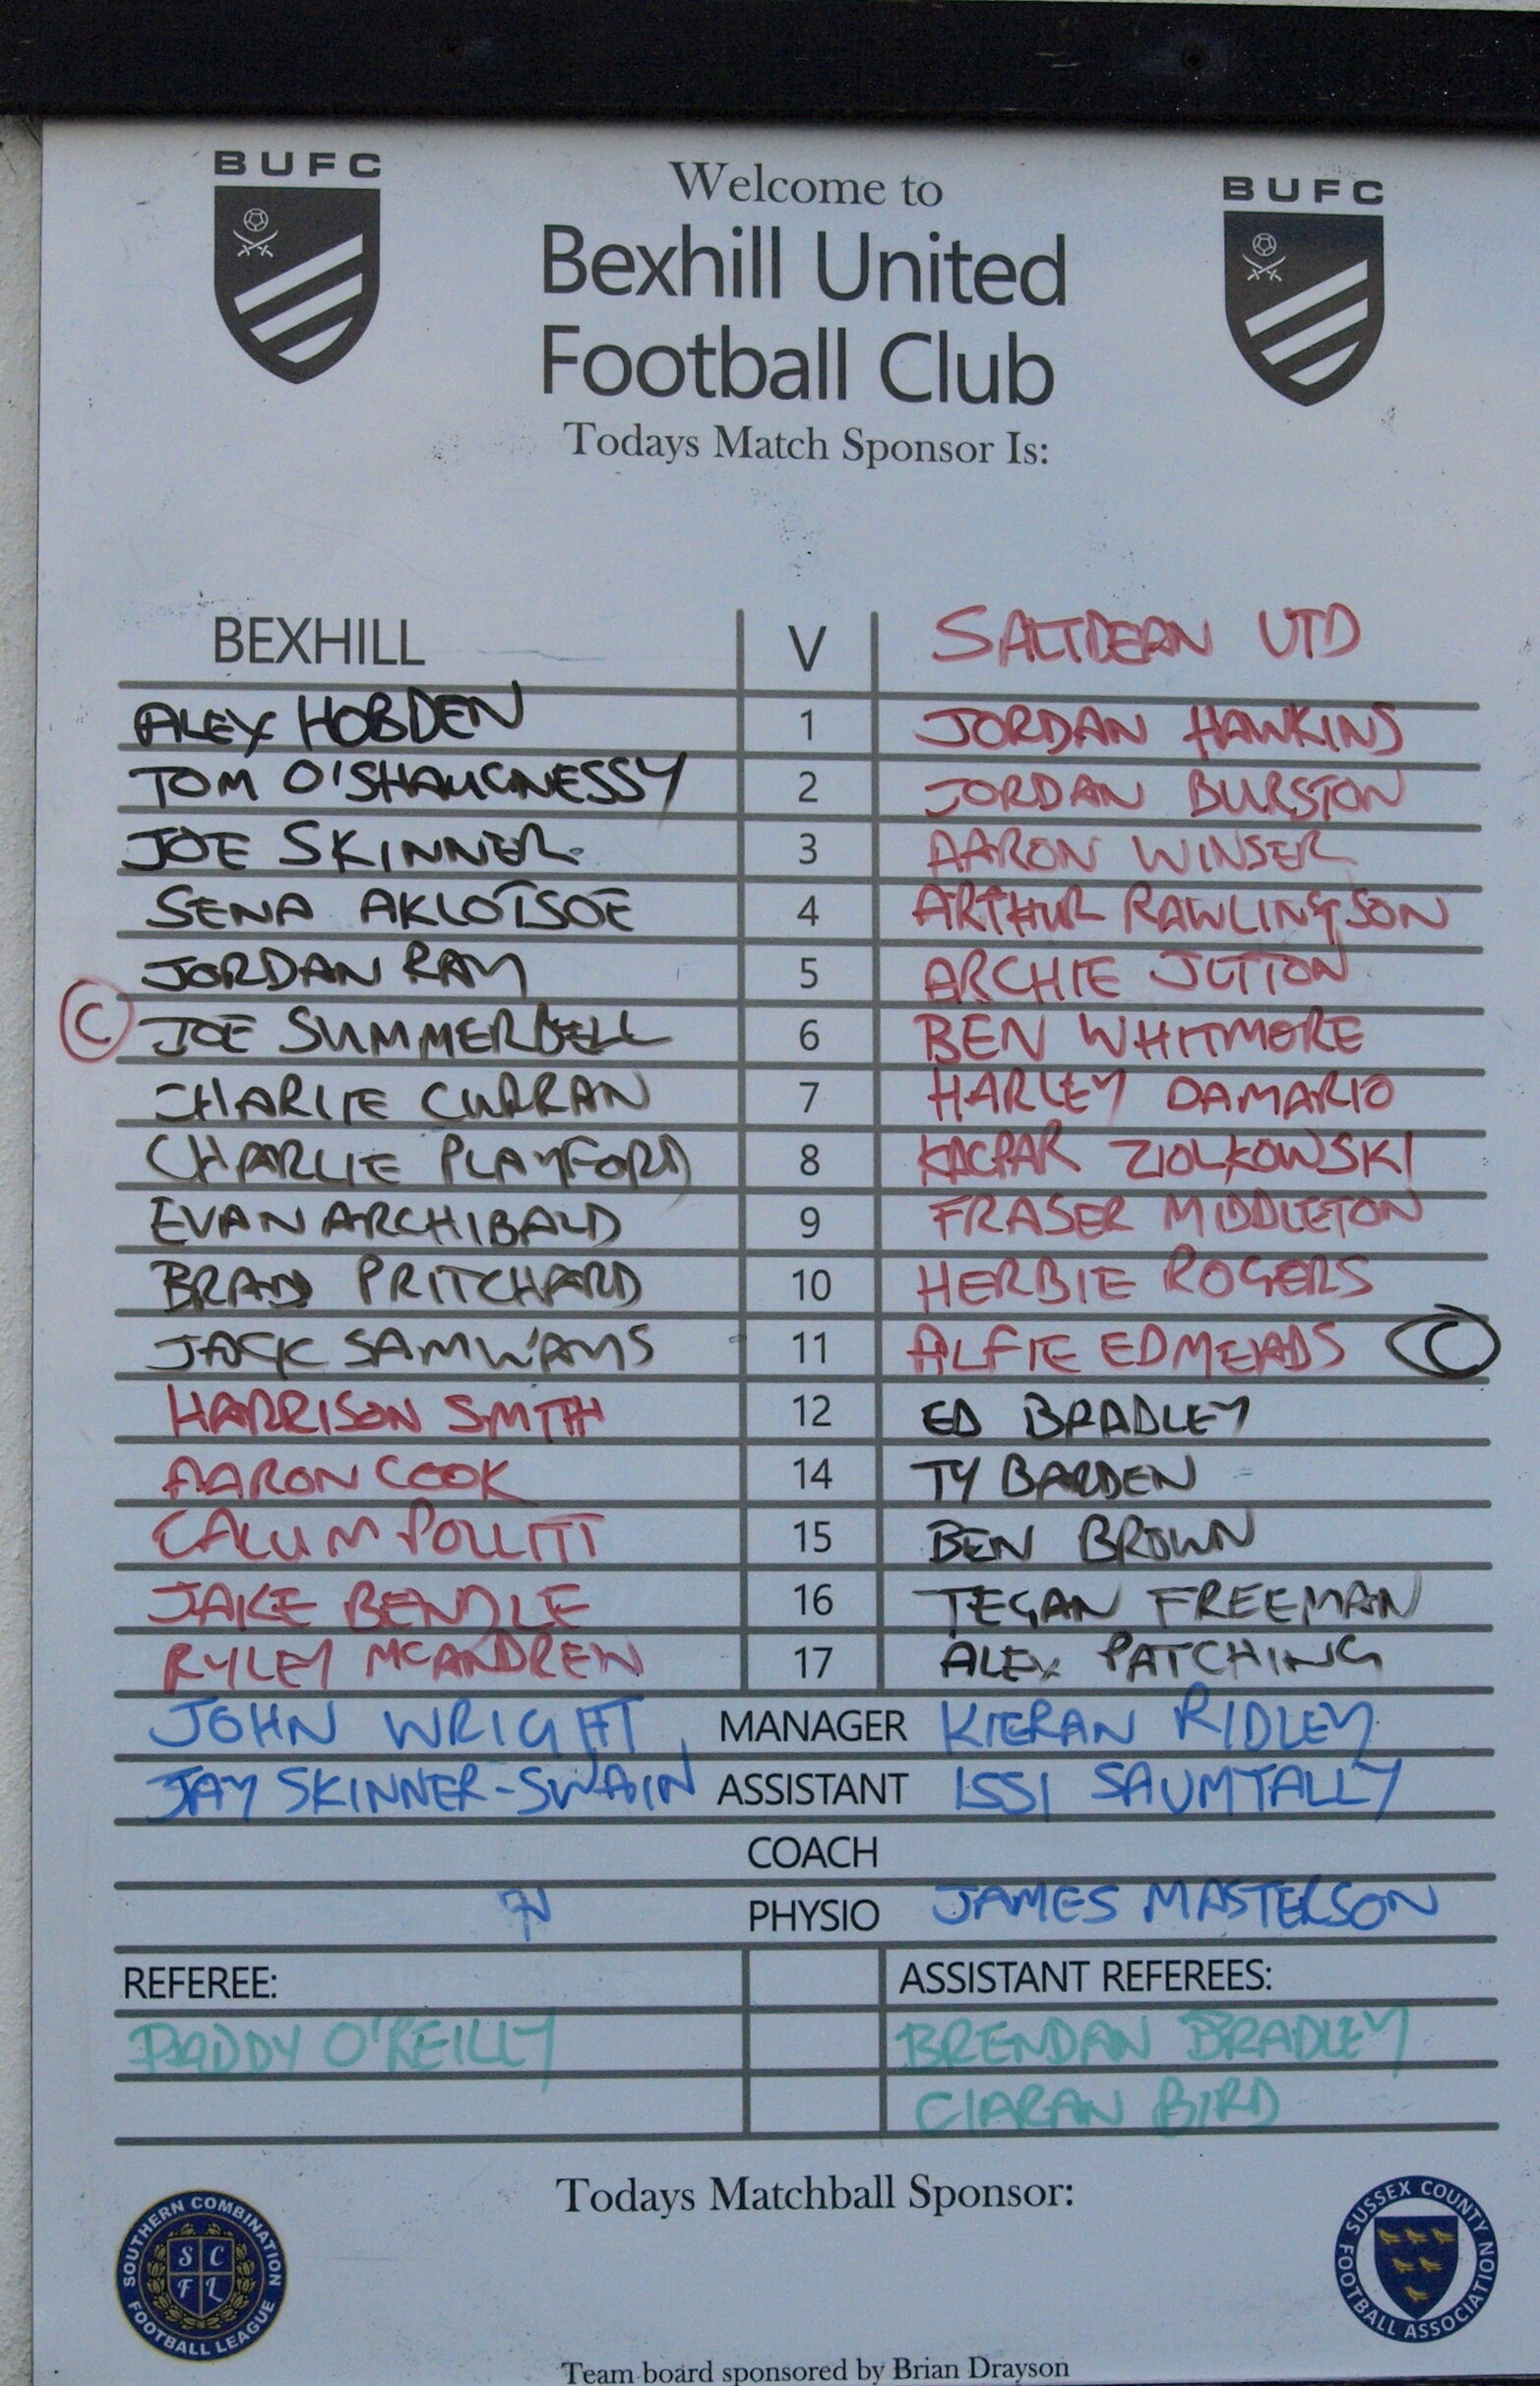 BUFC
BUFC
Welcome to
Bexhill United
Football Club
Todays Match Sponsor Is:
BEXHILL V SALTDEAN UTD
ALEX HOBDEN 1 JORDAN HAWKINS
TOM O'SHAUGNESSY 2 JORDAN BURSTON
JOE SKINNER 3 AARON WINSER
SENA AKLOTSOE 4 ARTHUR RAWLINGSON
JORDAN RAY 5 ARCHIE JUTTON
C JOE SUMMERBELL 6 BEN WHITMORE
CHARLIE CURRAN 7 HARLEY DAMARIO
CHARLIE PLAYFORD 8 KACPAR ZIOLKOWSKI
EVAN ARCHIBALD 9 FRASER MIDDLETON
BRAD PRITCHARD 10 HERBIE ROGERS
JACK SAMWAYS 11 ALFIE EDMEADS C
HARRISON SMITH 12 ED BRADLEY
AARON COOK 14 TY BARDEN
CALUM POLLITT 15 BEN BROWN
JAKE BENDLE 16 TEGAN FREEMAN
RYLEY MCANDREW 17 ALEX PATCHING
JOHN WRIGHT MANAGER KIERAN RIDLEY
JAY SKINNER-SWAIN ASSISTANT ISSI SAUMTALLY
COACH
PHYSIO JAMES MASTERSON
REFEREE: ASSISTANT REFEREES:
PADDY O'REILLY BRENDAN BRADLEY
CIARAN BIRD
Todays Matchball Sponsor:
SOUTHERN COMBINATION FOOTBALL LEAGUE
S C
F L
SUSSEX COUNTY FOOTBALL ASSOCIATION
Team board sponsored by Brian Drayson